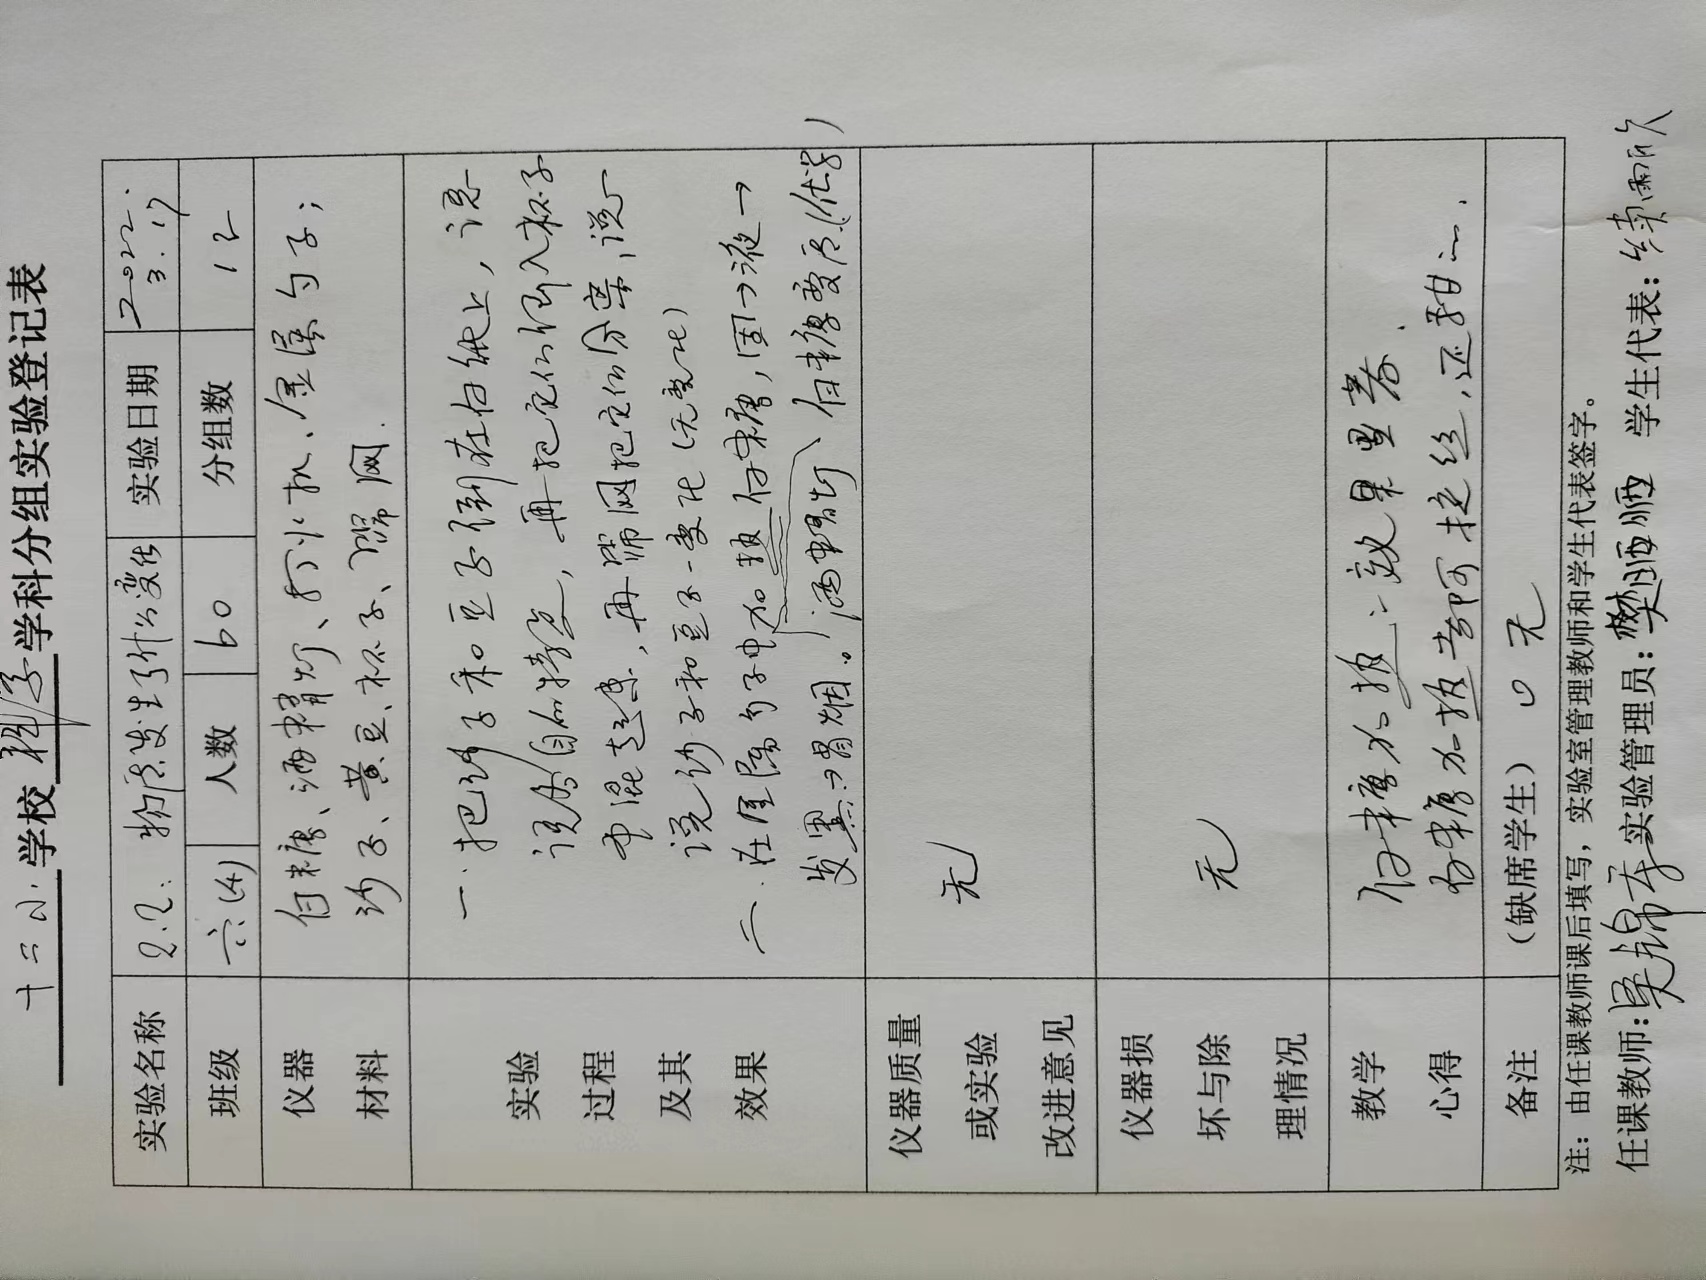 十二小学校科学学科分组实验登记表
实验名称 2.2. 物质发生了什么变化 实验日期 2022. 3.17
班级 六.(4) 人数 60 分组数 12
仪器 白糖、酒精灯、打火机、金属勺子;
材料 沙子、黄豆、杯子、筛网.
实验 一.把沙子和豆子倒在白纸上,说一
过程 说各自的特点,再把它们倒入杯子
及其 中混起来,再筛网把它们分离,说一
效果 说沙子和豆子变化(无变化)
二.在金属勺子中加热白糖,固→液→
发黑→冒烟。酒精灯 白糖变质(化学)
仪器质量
或实验 无
改进意见
仪器损
坏与除 无
理情况
教学 白糖加热,效果显著.
心得 白糖加热考可拉丝,还甜….
备注 (缺席学生) 无
注:由任课教师课后填写,实验室管理教师和学生代表签字。
任课教师:吴锦 实验管理员:樊丽丽 学生代表:续雨欣